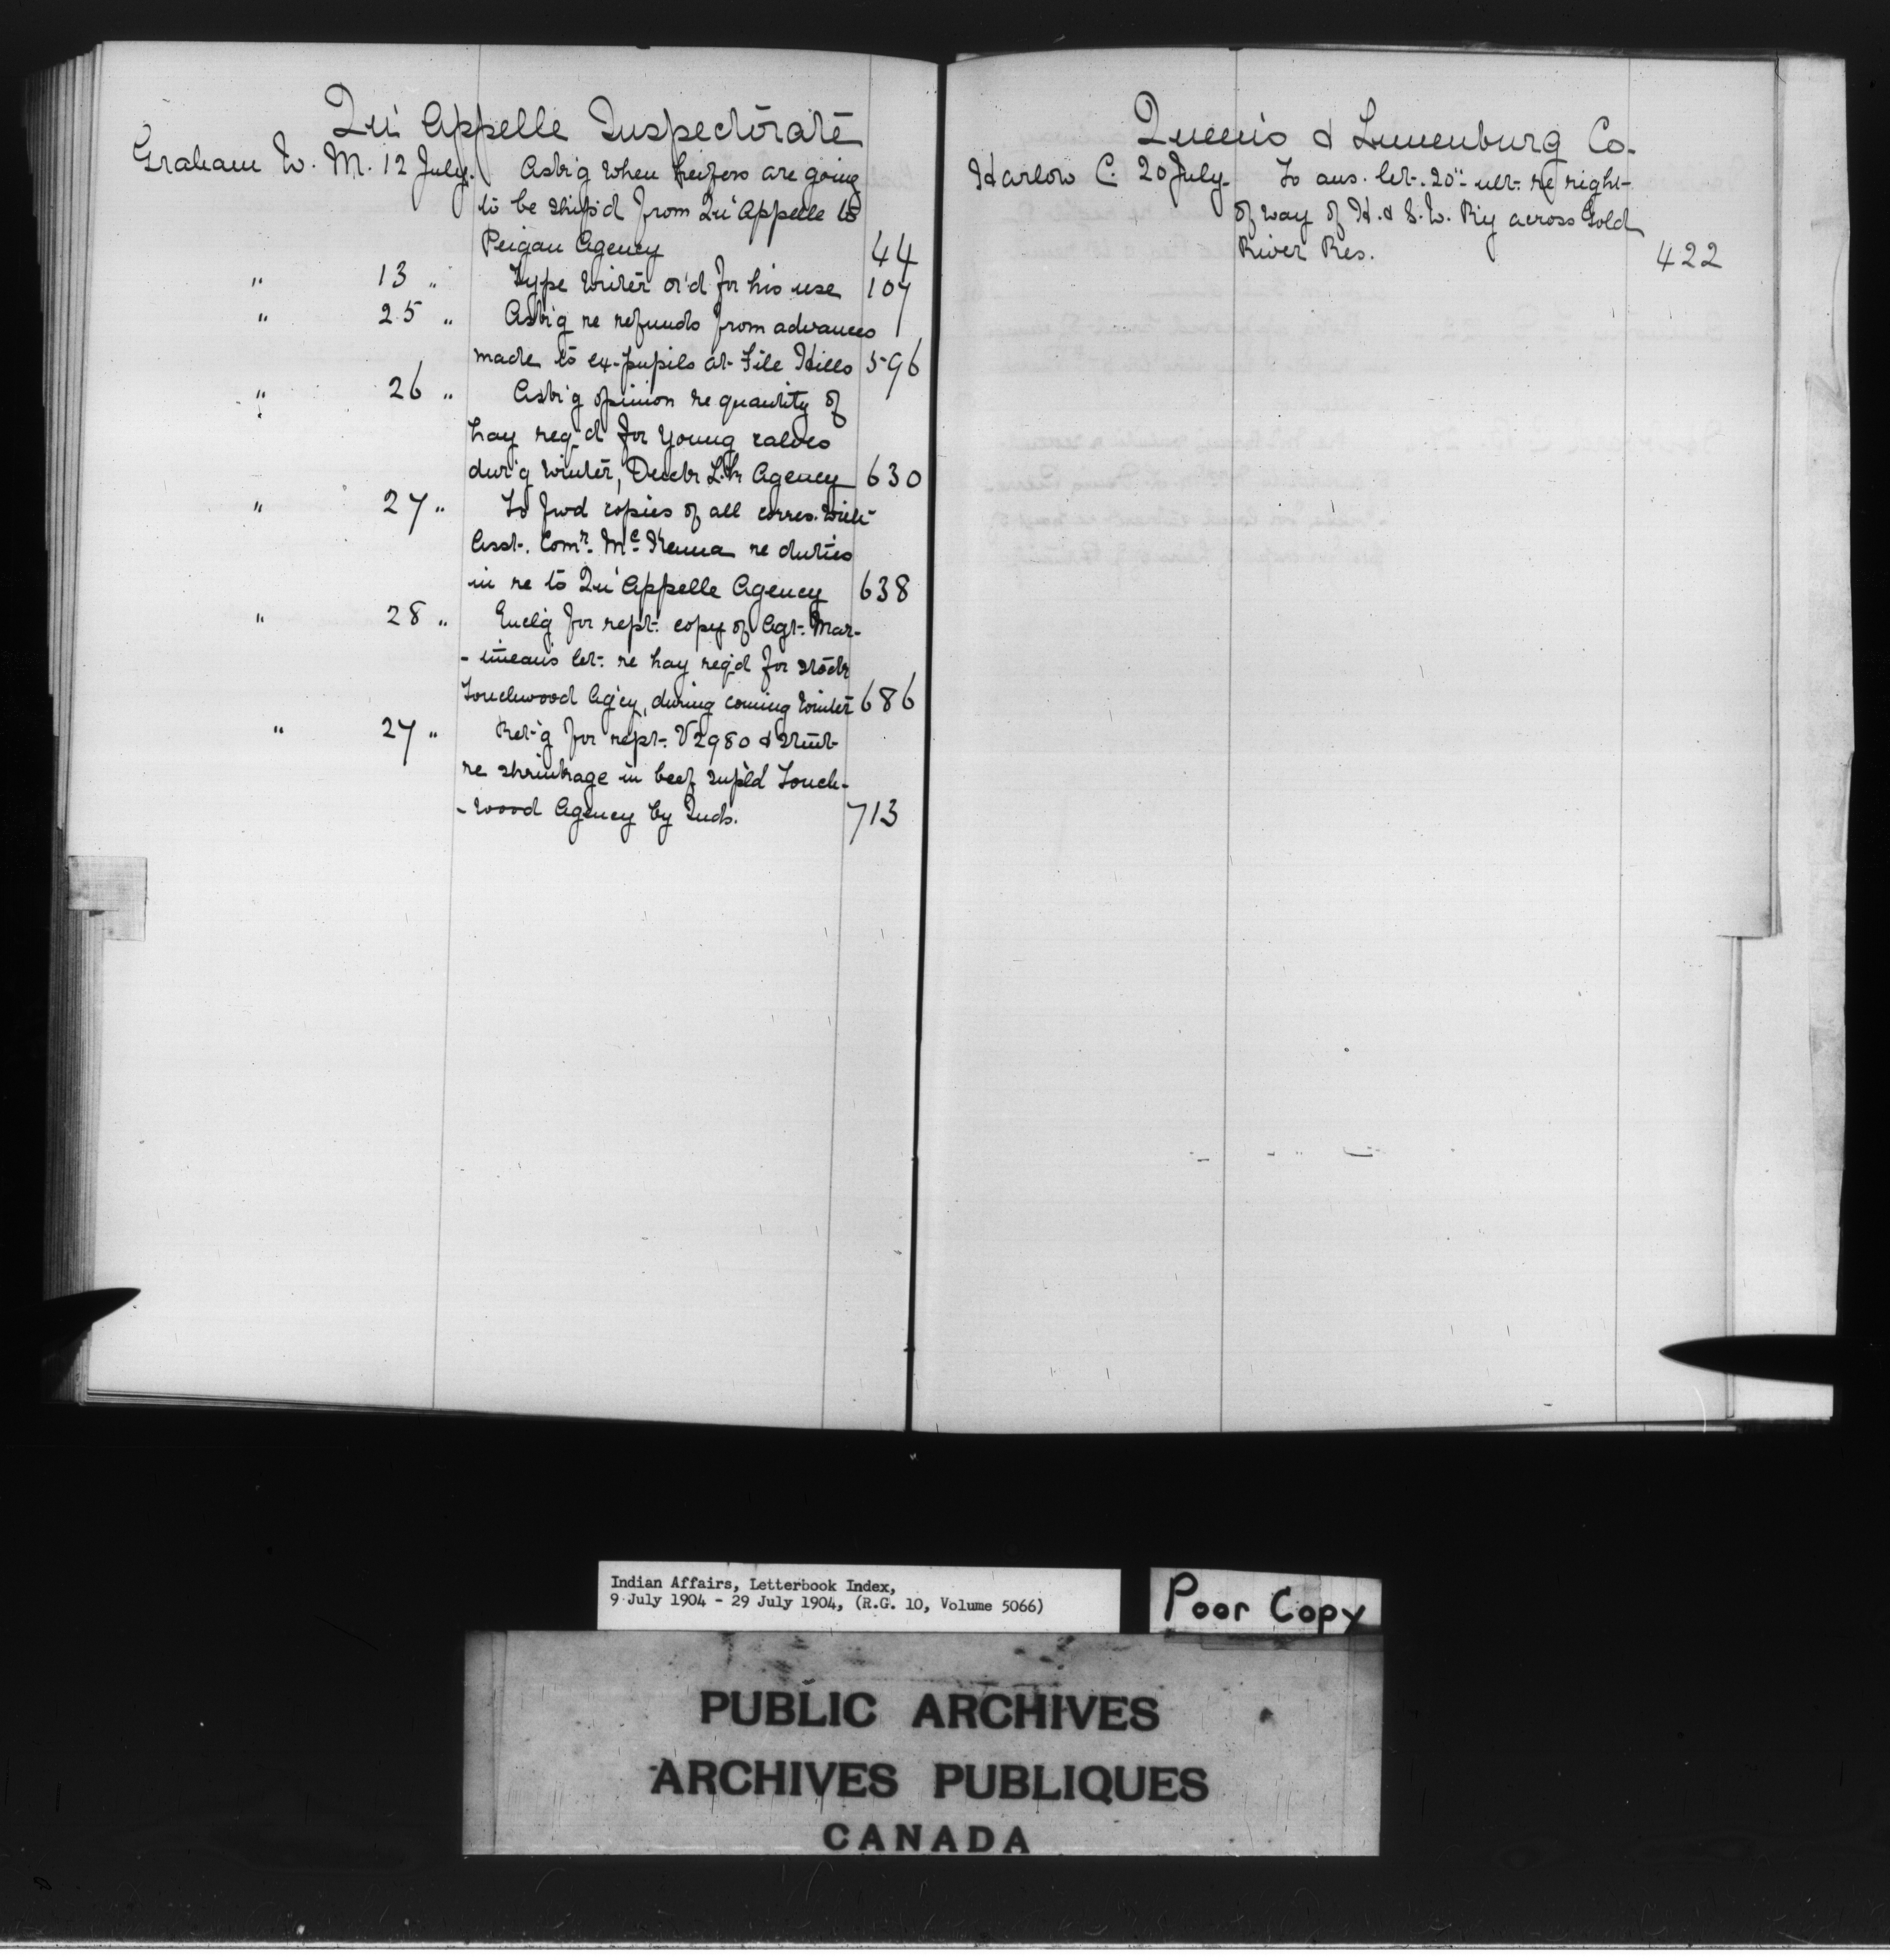 Qu'Appelle Inspectorate
Graham W. M. 12 July. Ask'g when heifers are going
to be ship'd from Qu'Appelle to
Peigan Agency 44
" 13 " Type writer or'd for his use 107
" 25 " Ask'g re refunds from advances
made to ex-pupils at File Hills 596
" 26 " Ask'g opinion re quantity of
hay req'd for young calves
dur'g winter, Duck L.k Agency 630
" 27 " To fwd copies of all corres. with
Asst. Comr. McKenna re duties
in re to Qu'Appelle Agency 638
" 28 " Encl'g for rept. copy of Agt. Mar-
-tineau's let. re hay req'd for stock
Touchwood Ag'cy, during coming winter 686
" 27 " Ret'g for rept. V2980 & stmt
re shrinkage in beef sup'ld Touch-
-wood Agency by Inds. 713
Queens & Lunenburg Co.
Harlow C. 20 July. To ans. let. 20" ult. re right
of way of H. & S. W. R'y across Gold
River Res. 422
Indian Affairs, Letterbook Index,
9 July 1904 - 29 July 1904, (R.G. 10, Volume 5066)
Poor Copy
PUBLIC ARCHIVES
ARCHIVES PUBLIQUES
CANADA